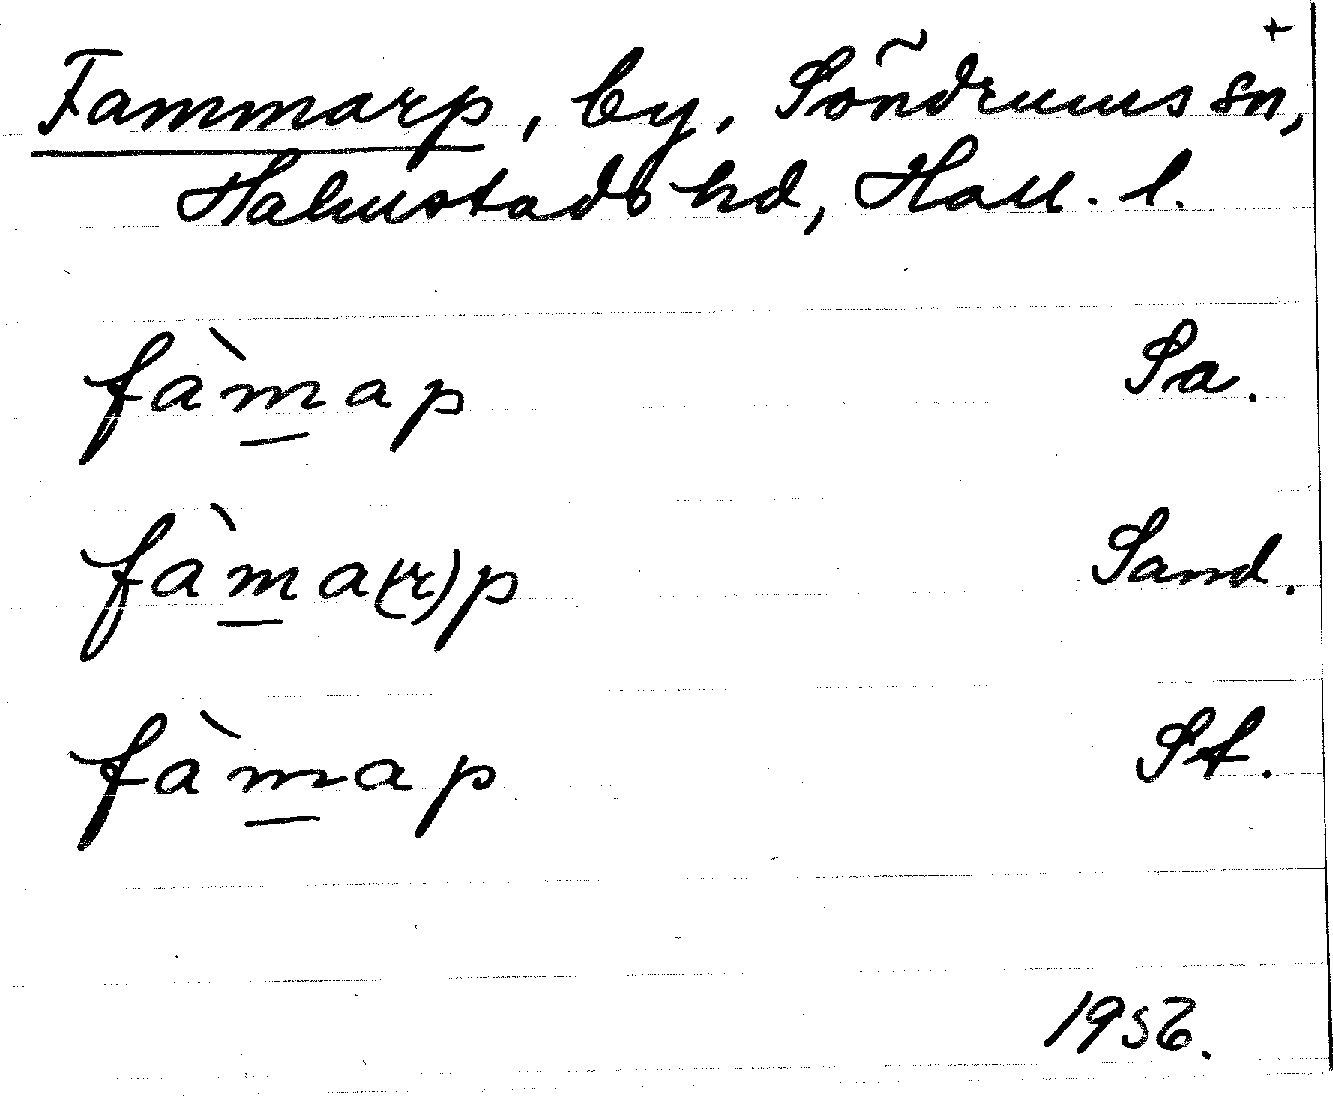 +
Fammarp, by, Söndrums sn,
Halmstads hd, Hall. l.
fàm̲ap Sa.
fàm̲a(r)p Sand.
fàm̲ap St.
1956.